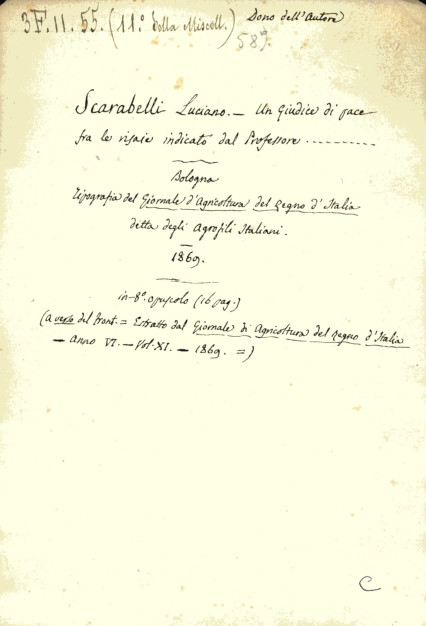 3F.II.55. (11º della Miscell.) Dono dell'Autore
587
Scarabelli Luciano. — Un Giudice di pace
fra le risaie indicato dal Professore ..........
Bologna
Tipografia del Giornale d'Agricoltura del Regno d'Italia
detta degli Agrofili Italiani.
1869.
in-8º. opuscolo (16 pag.)
(a verso del front. = Estratto dal Giornale di Agricoltura del Regno d'Italia
— Anno VI. — Vol. XI. — 1869. =)
C